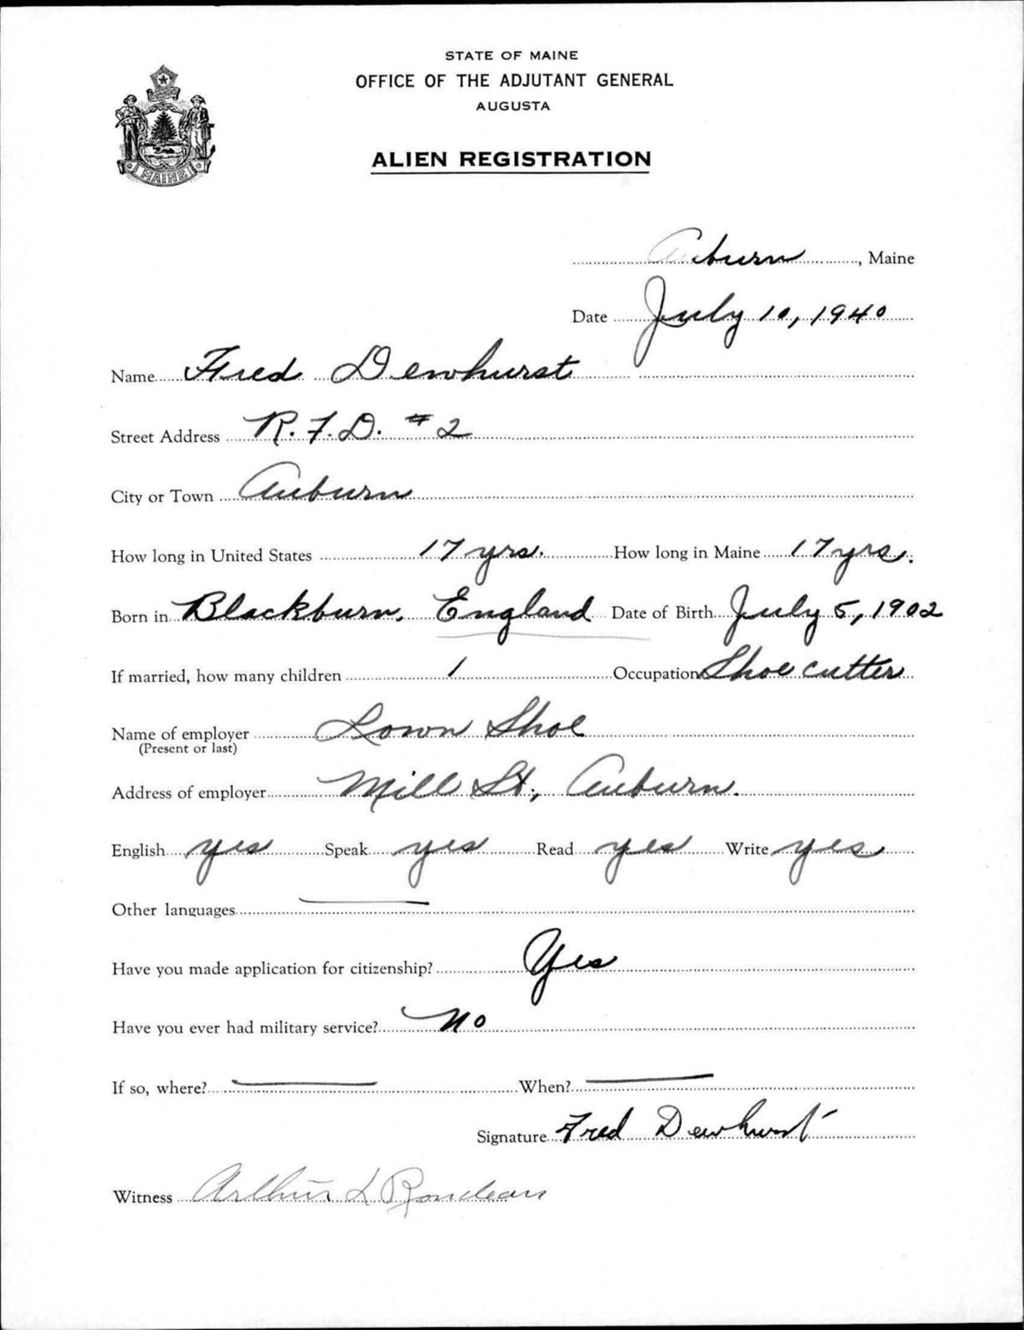 STATE OF MAINE
OFFICE OF THE ADJUTANT GENERAL
AUGUSTA
MAINE
ALIEN REGISTRATION
Auburn, Maine
Date July 10, 1940
Name Fred Dewhurst
Street Address R.F.D. #2
City or Town Auburn
How long in United States 17 yrs. How long in Maine 17 yrs.
Born in Blackburn, England Date of Birth July 5, 1902
If married, how many children 1 Occupation Shoe cutter
Name of employer Lown Shoe
(Present or last)
Address of employer Mill St., Auburn.
English yes Speak yes Read yes Write yes
Other languages
Have you made application for citizenship? Yes
Have you ever had military service? No
If so, where? When?
Signature Fred Dewhurst
Witness Arthur L Rondeau